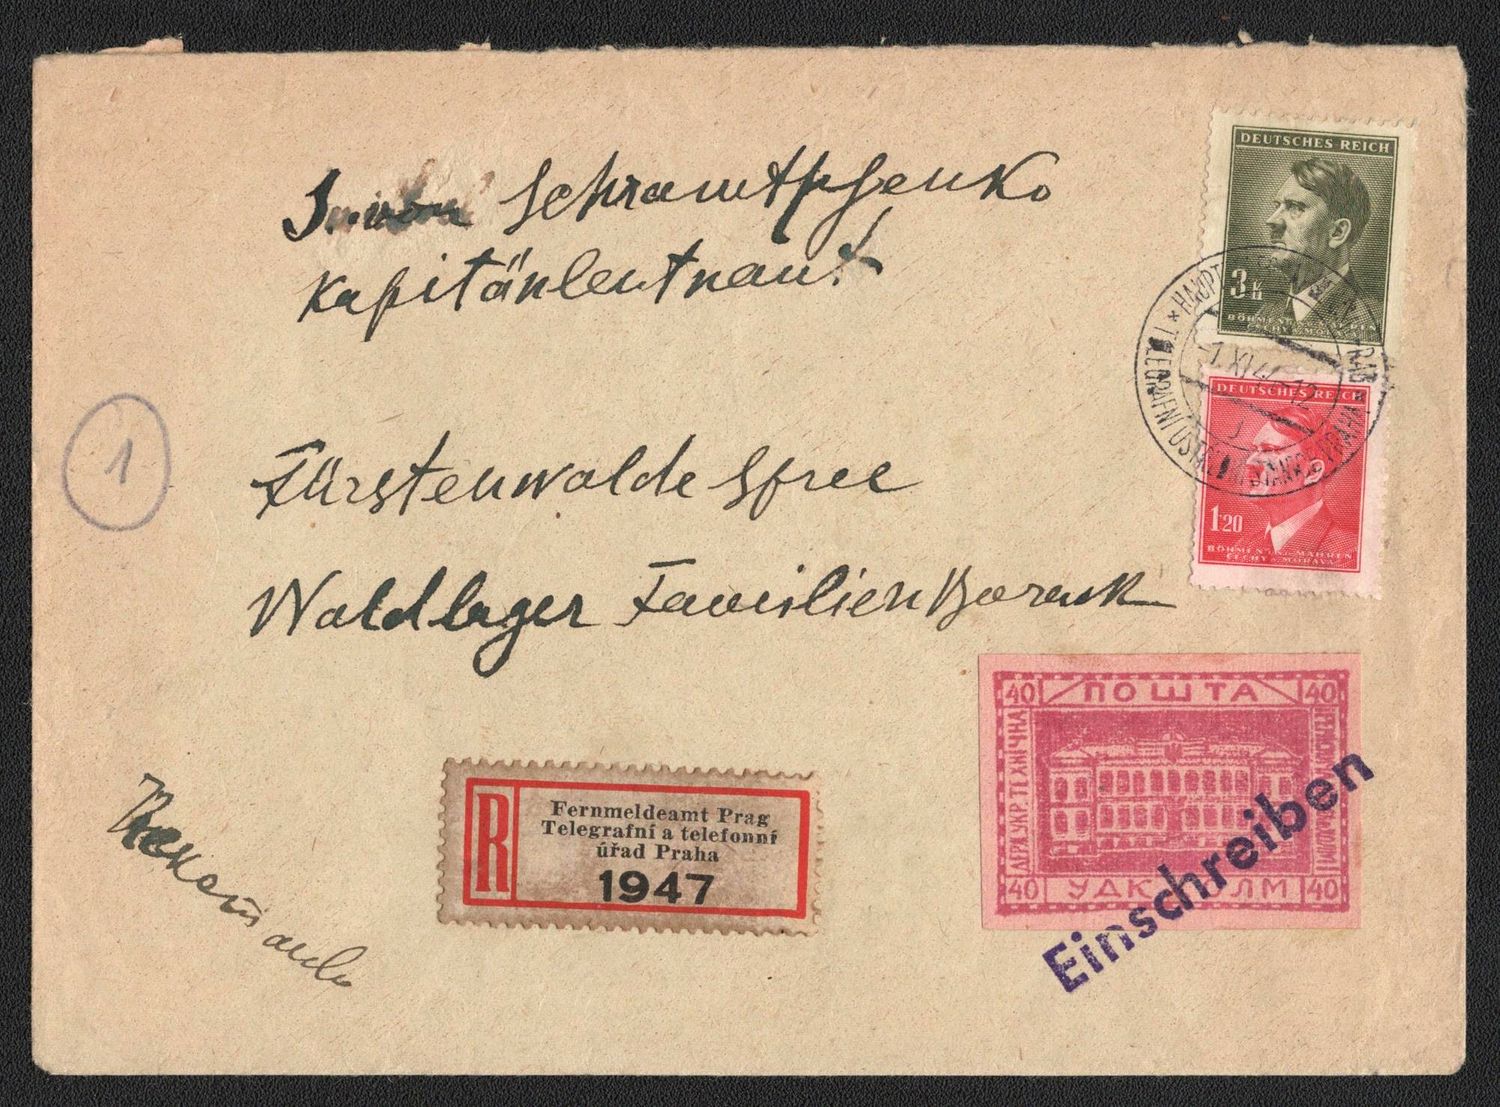 Schramtschenko
Kapitänleutnant
Fürstenwalde Spree
Waldlager Familien Barack
1
DEUTSCHES REICH
3 K
BÖHMEN U. MÄHREN
ČECHY A MORAVA
-1.XI.4 -12
DEUTSCHES REICH
1.20
BÖHMEN U. MÄHREN
ČECHY A MORAVA
R
Fernmeldeamt Prag
Telegrafní a telefonní
úřad Praha
1947
40 ПОШТА 40
УКР. ТЕХНІЧНА
40 40
Einschreiben